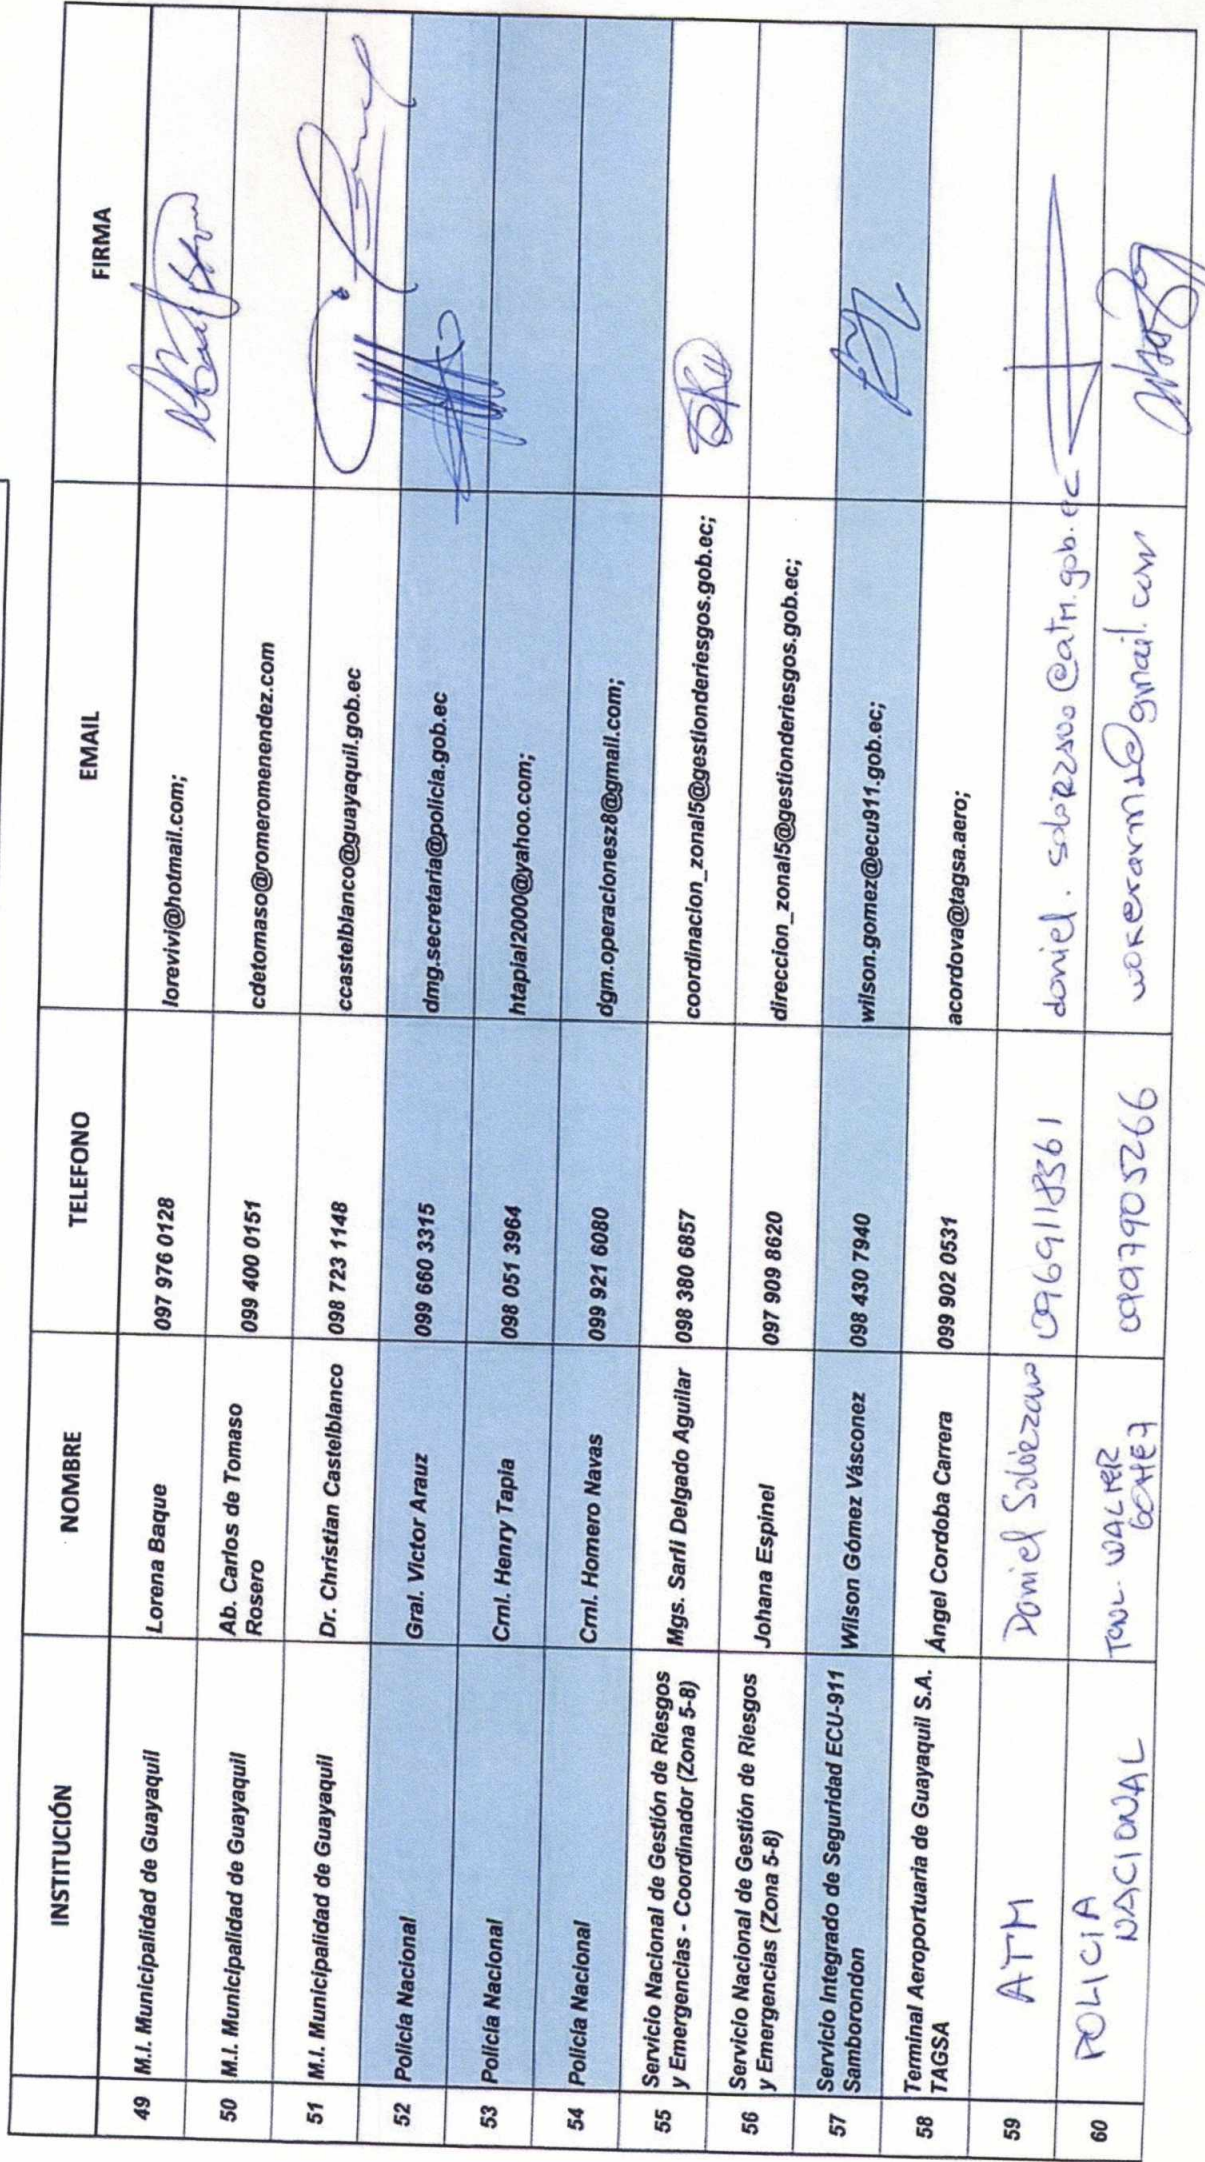 INSTITUCIÓN NOMBRE TELEFONO EMAIL FIRMA
49 M.I. Municipalidad de Guayaquil Lorena Baque 097 976 0128 lorevivi@hotmail.com;
50 M.I. Municipalidad de Guayaquil Ab. Carlos de Tomaso 099 400 0151 cdetomaso@romeromenendez.com
Rosero
51 M.I. Municipalidad de Guayaquil Dr. Christian Castelblanco 098 723 1148 ccastelblanco@guayaquil.gob.ec
52 Policía Nacional Gral. Victor Arauz 099 660 3315 dmg.secretaria@policia.gob.ec
53 Policía Nacional Crnl. Henry Tapia 098 051 3964 htapial2000@yahoo.com;
54 Policía Nacional Crnl. Homero Navas 099 921 6080 dgm.operacionesz8@gmail.com;
55 Servicio Nacional de Gestión de Riesgos Mgs. Sarli Delgado Aguilar 098 380 6857 coordinacion_zonal5@gestionderiesgos.gob.ec;
y Emergencias - Coordinador (Zona 5-8)
56 Servicio Nacional de Gestión de Riesgos Johana Espinel 097 909 8620 direccion_zonal5@gestionderiesgos.gob.ec;
y Emergencias (Zona 5-8)
57 Servicio Integrado de Seguridad ECU-911 Wilson Gómez Vásconez 098 430 7940 wilson.gomez@ecu911.gob.ec;
Samborondon
58 Terminal Aeroportuaria de Guayaquil S.A. Ángel Cordoba Carrera 099 902 0531 acordova@tagsa.aero;
TAGSA
59 ATM Daniel Solórzano 0969118361 daniel.solorzano@atm.gob.ec
60 POLICIA WALTER 0997905266
NACIONAL GOMEZ